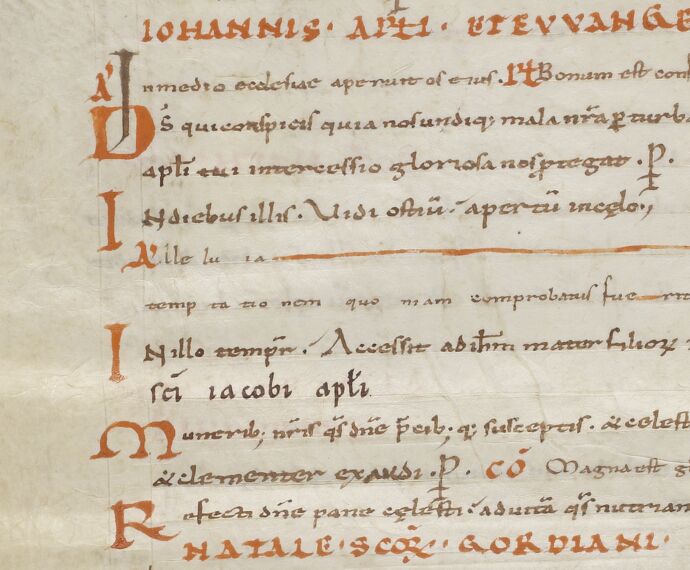 IOHANNIS · APƚI · ET EVVANGE
A' Inmedio ecclesiae aperuit os eius. PƚBonum est con
D̅s̅ qui conspicis quia nos undiq; mala nr̄a ꝑturb
apƚi tui intercessio gloriosa nos ꝓtegat . P .
INdiebus illis . Vidi ostiū apertū incęlo .,
Alle lu ia
temp ta tio nem quo niam comprobatus fue rit
INillo tempr̄ . Accessit ad ihm̄ mater filioꝝ
sc̄i iacobi apƚi
Munerib; nr̄is q̄s dn̄e p̄cib; q; susceptis . & celest
& clementer exaudi . P . CŌ Magna est g
Refecti dn̄e pane cęlesti . ad uitā q̄s nutrian
NATALE · SCOꝝ · GORDIANI ·